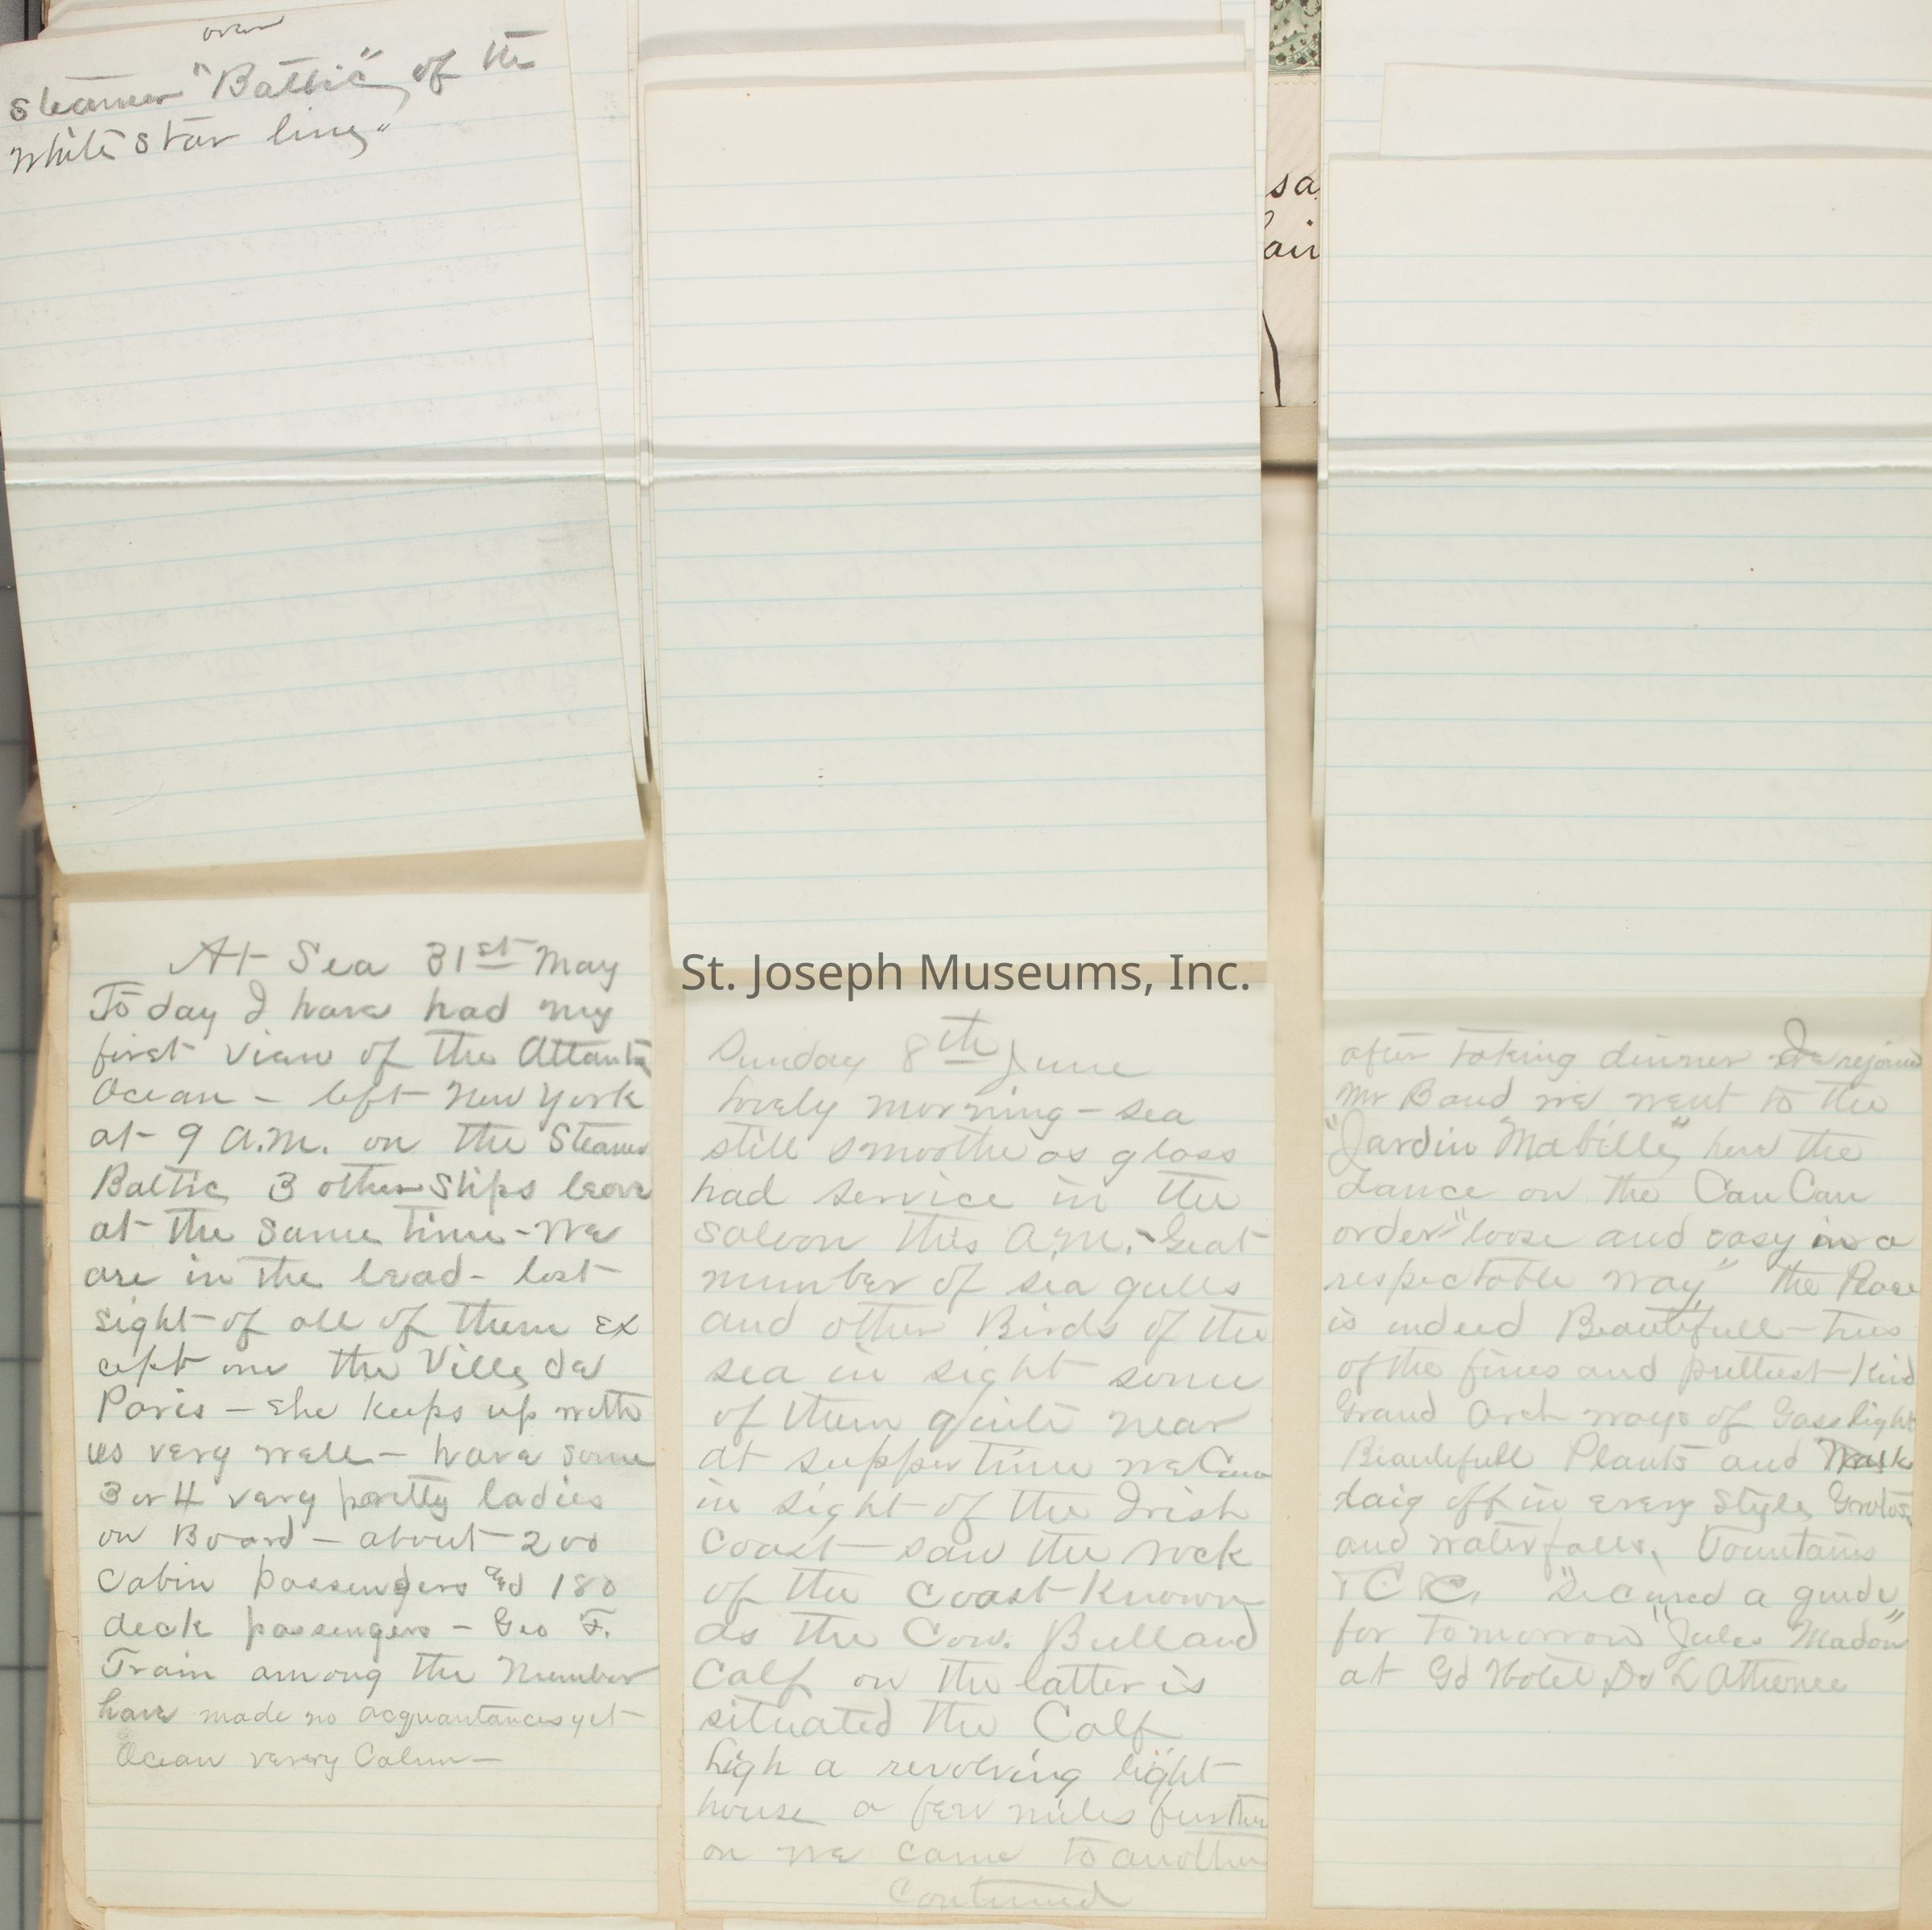 over
steamer "Baltic" of the
White Star line"
At Sea 31st May
To day I have had my
first view of the Atlantic
Ocean - left New York
at 9 A.M. on the Steamer
Baltic, 3 other Ships leave
at the same time - we
are in the lead - lost
sight of all of them ex
cept one the Ville de
Paris - she keeps up with
us very well - have some
3 or 4 very pretty ladies
on Board - about 200
Cabin passengers and 180
deck passengers - Geo F.
Train among the Number
have made no acquantances yet
Ocean verery Calm -
St. Joseph Museums, Inc.
Sunday 8th June
Lovely morning - sea
still smoothe as glass
had service in the
saloon this A.M. - Great
number of sea gulls
and other Birds of the
sea in sight some
of them quite near
at supper time we Came
in sight of the Irish
Coast - saw the rock
of the Coast Known
as the Cow. Bull and
Calf on the latter is
situated the Calf
high a revolving light
house a few miles further
on we came to another
Continued
after taking dinner rejoined
Mr Baud we went to the
"Jardin Mabille", here the
dance on the Can Can
order "loose and easy in a
respectable way" the Place
is indeed Beautifull - trees
of the fines and prettiest Kind
Grand Arch ways of Gass light
Beautifull Plants and
laig off in every style, Grotos,
and waterfalls, Fountains
Secured a guide
for tomorrow "Jules Madon"
at Gd Hotel De L Athenee
sa
air